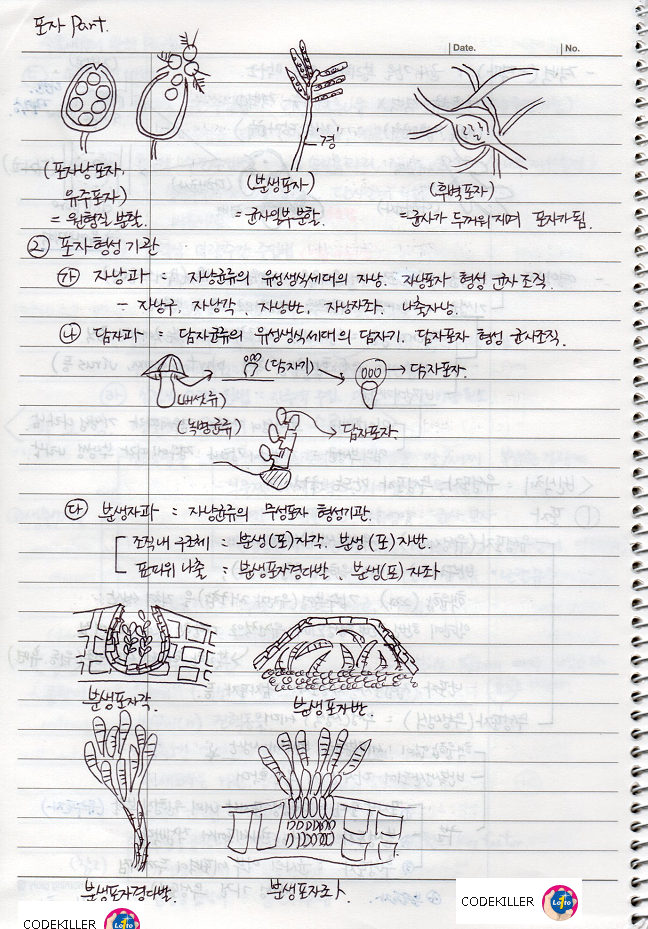 포자 Part.
Date. No.
'경'
(포자낭포자,
유주포자)
= 원형질 분할.
(분생포자)
= 균사일부 분할.
(후벽포자)
= 균사가 두꺼워지며 포자가 됨.
② 포자형성 기관
㉮ 자낭과 : 자낭균류의 유성생식세대의 자낭. 자낭포자 형성 균사 조직.
- 자낭구, 자낭각, 자낭반, 자낭자좌, 나출자낭.
㉯ 담자과 : 담자균류의 유성생식세대의 담자기. 담자포자 형성 균사조직.
(담자기) 담자포자.
(버섯류)
(녹병균류) 담자포자.
㉰ 분생자과 : 자낭균류의 무성포자 형성기관.
조직내 구조체 : 분생(포)자각, 분생(포)자반.
표피위 나출 : 분생포자경다발, 분생(포)자좌
분생포자각 분생포자반.
분생포자경다발. 분생포자좌.
CODEKILLER Lotto
CODEKILLER Lotto